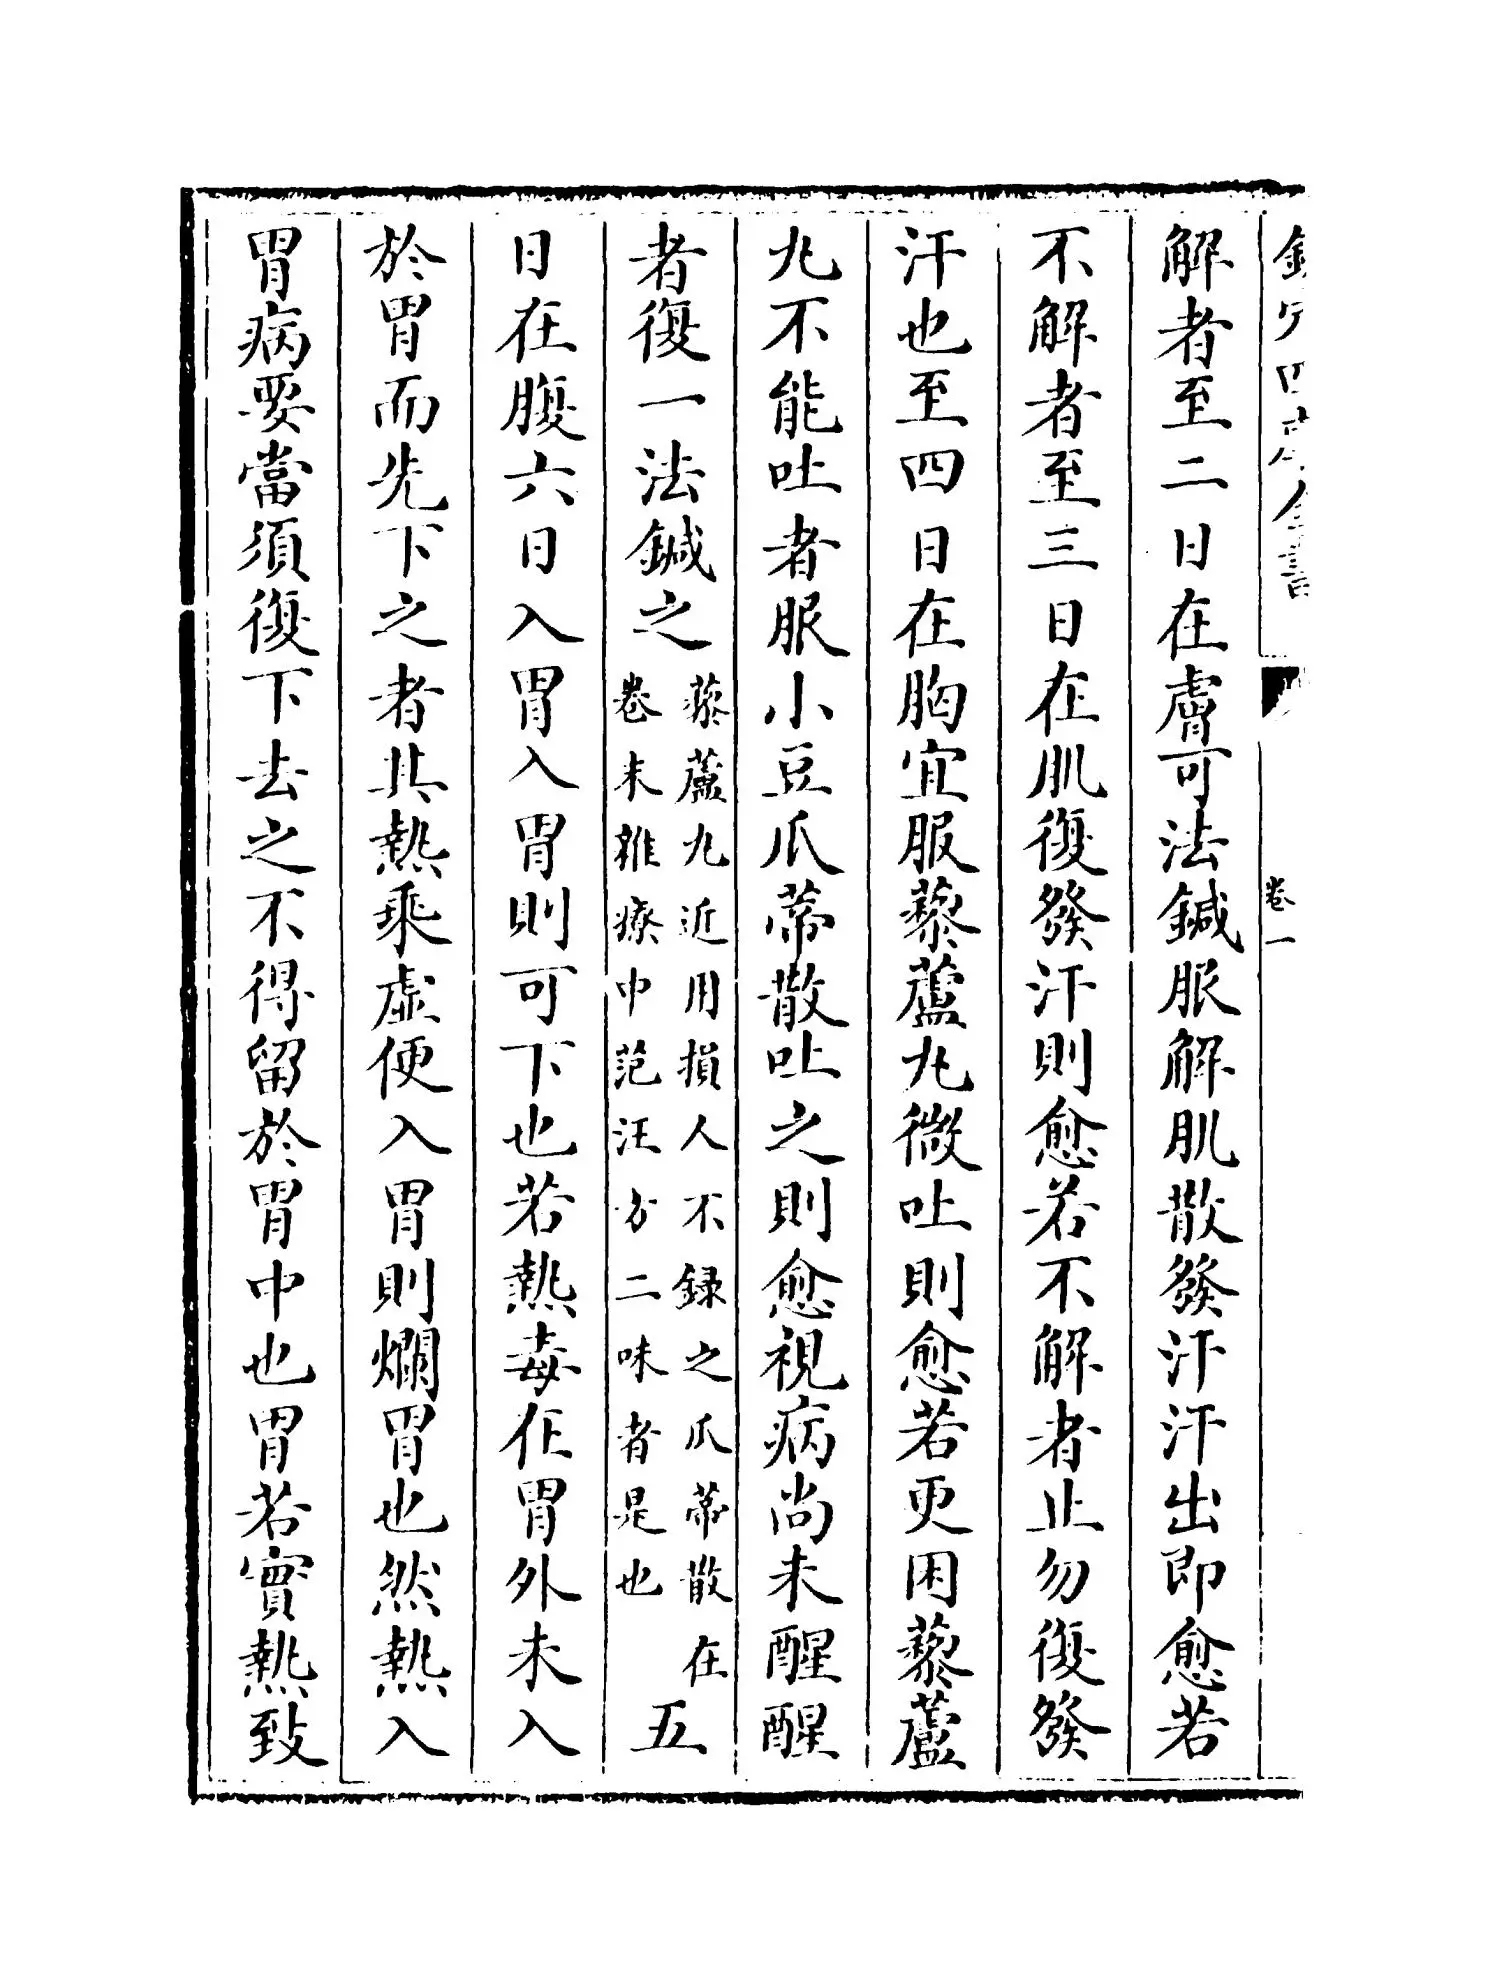 解者至二日在膚可法鍼服解肌散發汗汗出即愈若
不解者至三日在肌復發汗則愈若不解者止勿復發
汗也至四日在胸宜服藜蘆丸微吐則愈若更困藜蘆
丸不能吐者服小豆瓜蒂散吐之則愈視病尚未醒醒
者復一法鍼之
藜蘆丸近用損人不録之瓜蒂散在
卷末雜療中范汪方二味者是也
五
日在腹六日入胃入胃則可下也若熱毒在胃外未入
於胃而先下之者其熱乘虛便入胃則爛胃也然熱入
胃病要當須復下去之不得留於胃中也胃若實熱致
卷一